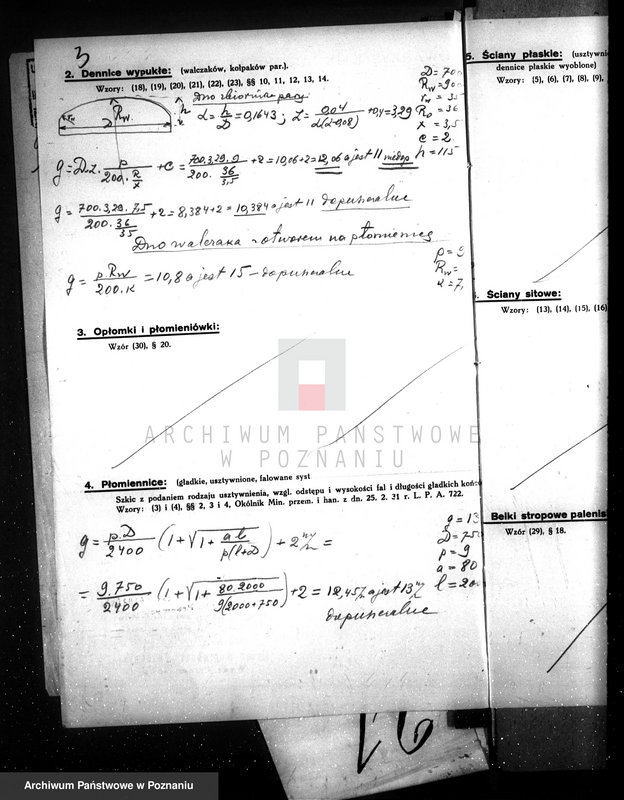 3
2. Dennice wypukłe: (walczaków, kołpaków par.).
Wzory: (18), (19), (20), (21), (22), (23), §§ 10, 11, 12, 13, 14.
Dno zbiornika pary
h
Rw
α = h/D = 0,1643; Z = 0,04/α(α-0,08) + 0,4 = 3,29
D = 700
Rw = 900
rw = 35
Ro = 36
x = 3,5
c = 2
h = 115
g = D.z. p/200. R/x + c = 700.3,29.9/200. 36/3,5 + 2 = 10,06 + 2 = 12,06 a jest 11 niedop
g = 700.3,29.7,5/200. 36/35 + 2 = 8,384 + 2 = 10,384 a jest 11 dopuszczalne
Dno walczaka z otworem na płomienicę
g = p.Rw/200.K = 10,8 a jest 15 – dopuszczalne
p = 9
Rw =
3. Opłomki i płomieniówki:
Wzór (30), § 20.
ARCHIWUM PAŃSTWOWE
W POZNANIU
4. Płomiennice: (gładkie, usztywnione, falowane syst
Szkic z podaniem rodzaju usztywnienia, wzgl. odstępu i wysokości fal i długości gładkich końc
Wzory: (3) i (4), §§ 2, 3 i 4, Okólnik Min. przem. i han. z dn. 25. 2. 31 r. L. P. A. 722.
g = p.D/2400 (1 + √1 + al/p(l+D)) + 2 =
= 9.750/2400 (1 + √1 + 80.2000/9(2000+750)) + 2 = 12,45 a jest 13
dopuszczalne
g = 13
D = 750
p = 9
a = 80
l = 200
5. Ściany płaskie: (usztywni
dennice płaskie wyoblone)
Wzory: (5), (6), (7), (8), (9),
Ściany sitowe:
Wzory: (13), (14), (15), (16)
Belki stropowe palenis
Wzór (29), § 18.
Archiwum Państwowe w Poznaniu